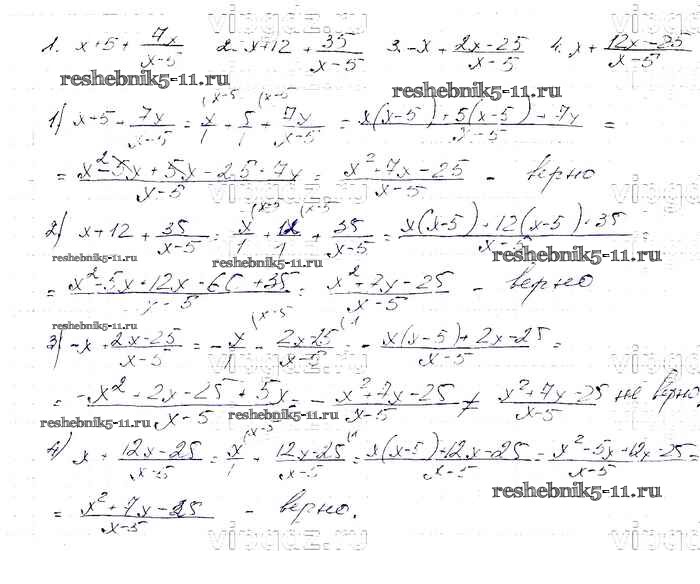 1. x+5+ 7x/x-5 2. x+12 + 35/x-5 3. -x + 2x-25/x-5 4. x + 12x-25/x-5
reshebnik5-11.ru reshebnik5-11.ru
1) x+5+ 7x/x-5 = x/1 (x-5 + 5/1 (x-5 + 7x/x-5 = x(x-5)+5(x-5)+7x/x-5 =
= x²-5x+5x-25+7x/x-5 = x²+7x-25/x-5 - верно
2) x+12+ 35/x-5 = x/1 (x-5 + 12/1 (x-5 + 35/x-5 = x(x-5)+12(x-5)+35/x-5 =
reshebnik5-11.ru reshebnik5-11.ru reshebnik5-11.ru
= x²-5x+12x-60+35/x-5 = x²+7x-25/x-5 - верно
reshebnik5-11.ru
3) -x+ 2x-25/x-5 = -x/1 (x-5 - 2x-25/x-5 (1 = -x(x-5)+2x-25/x-5 =
= -x²+2x-25+5x/x-5 = -x²+7x-25/x-5 ≠ x²+7x-25/x-5 не верно
reshebnik5-11.ru reshebnik5-11.ru
4) x + 12x-25/x-5 = x/1 (x-5 + 12x-25/x-5 (1 = x(x-5)+12x-25/x-5 = x²-5x+12x-25/x-5 =
reshebnik5-11.ru
= x²+7x-25/x-5 - верно.
vipgdz.ru